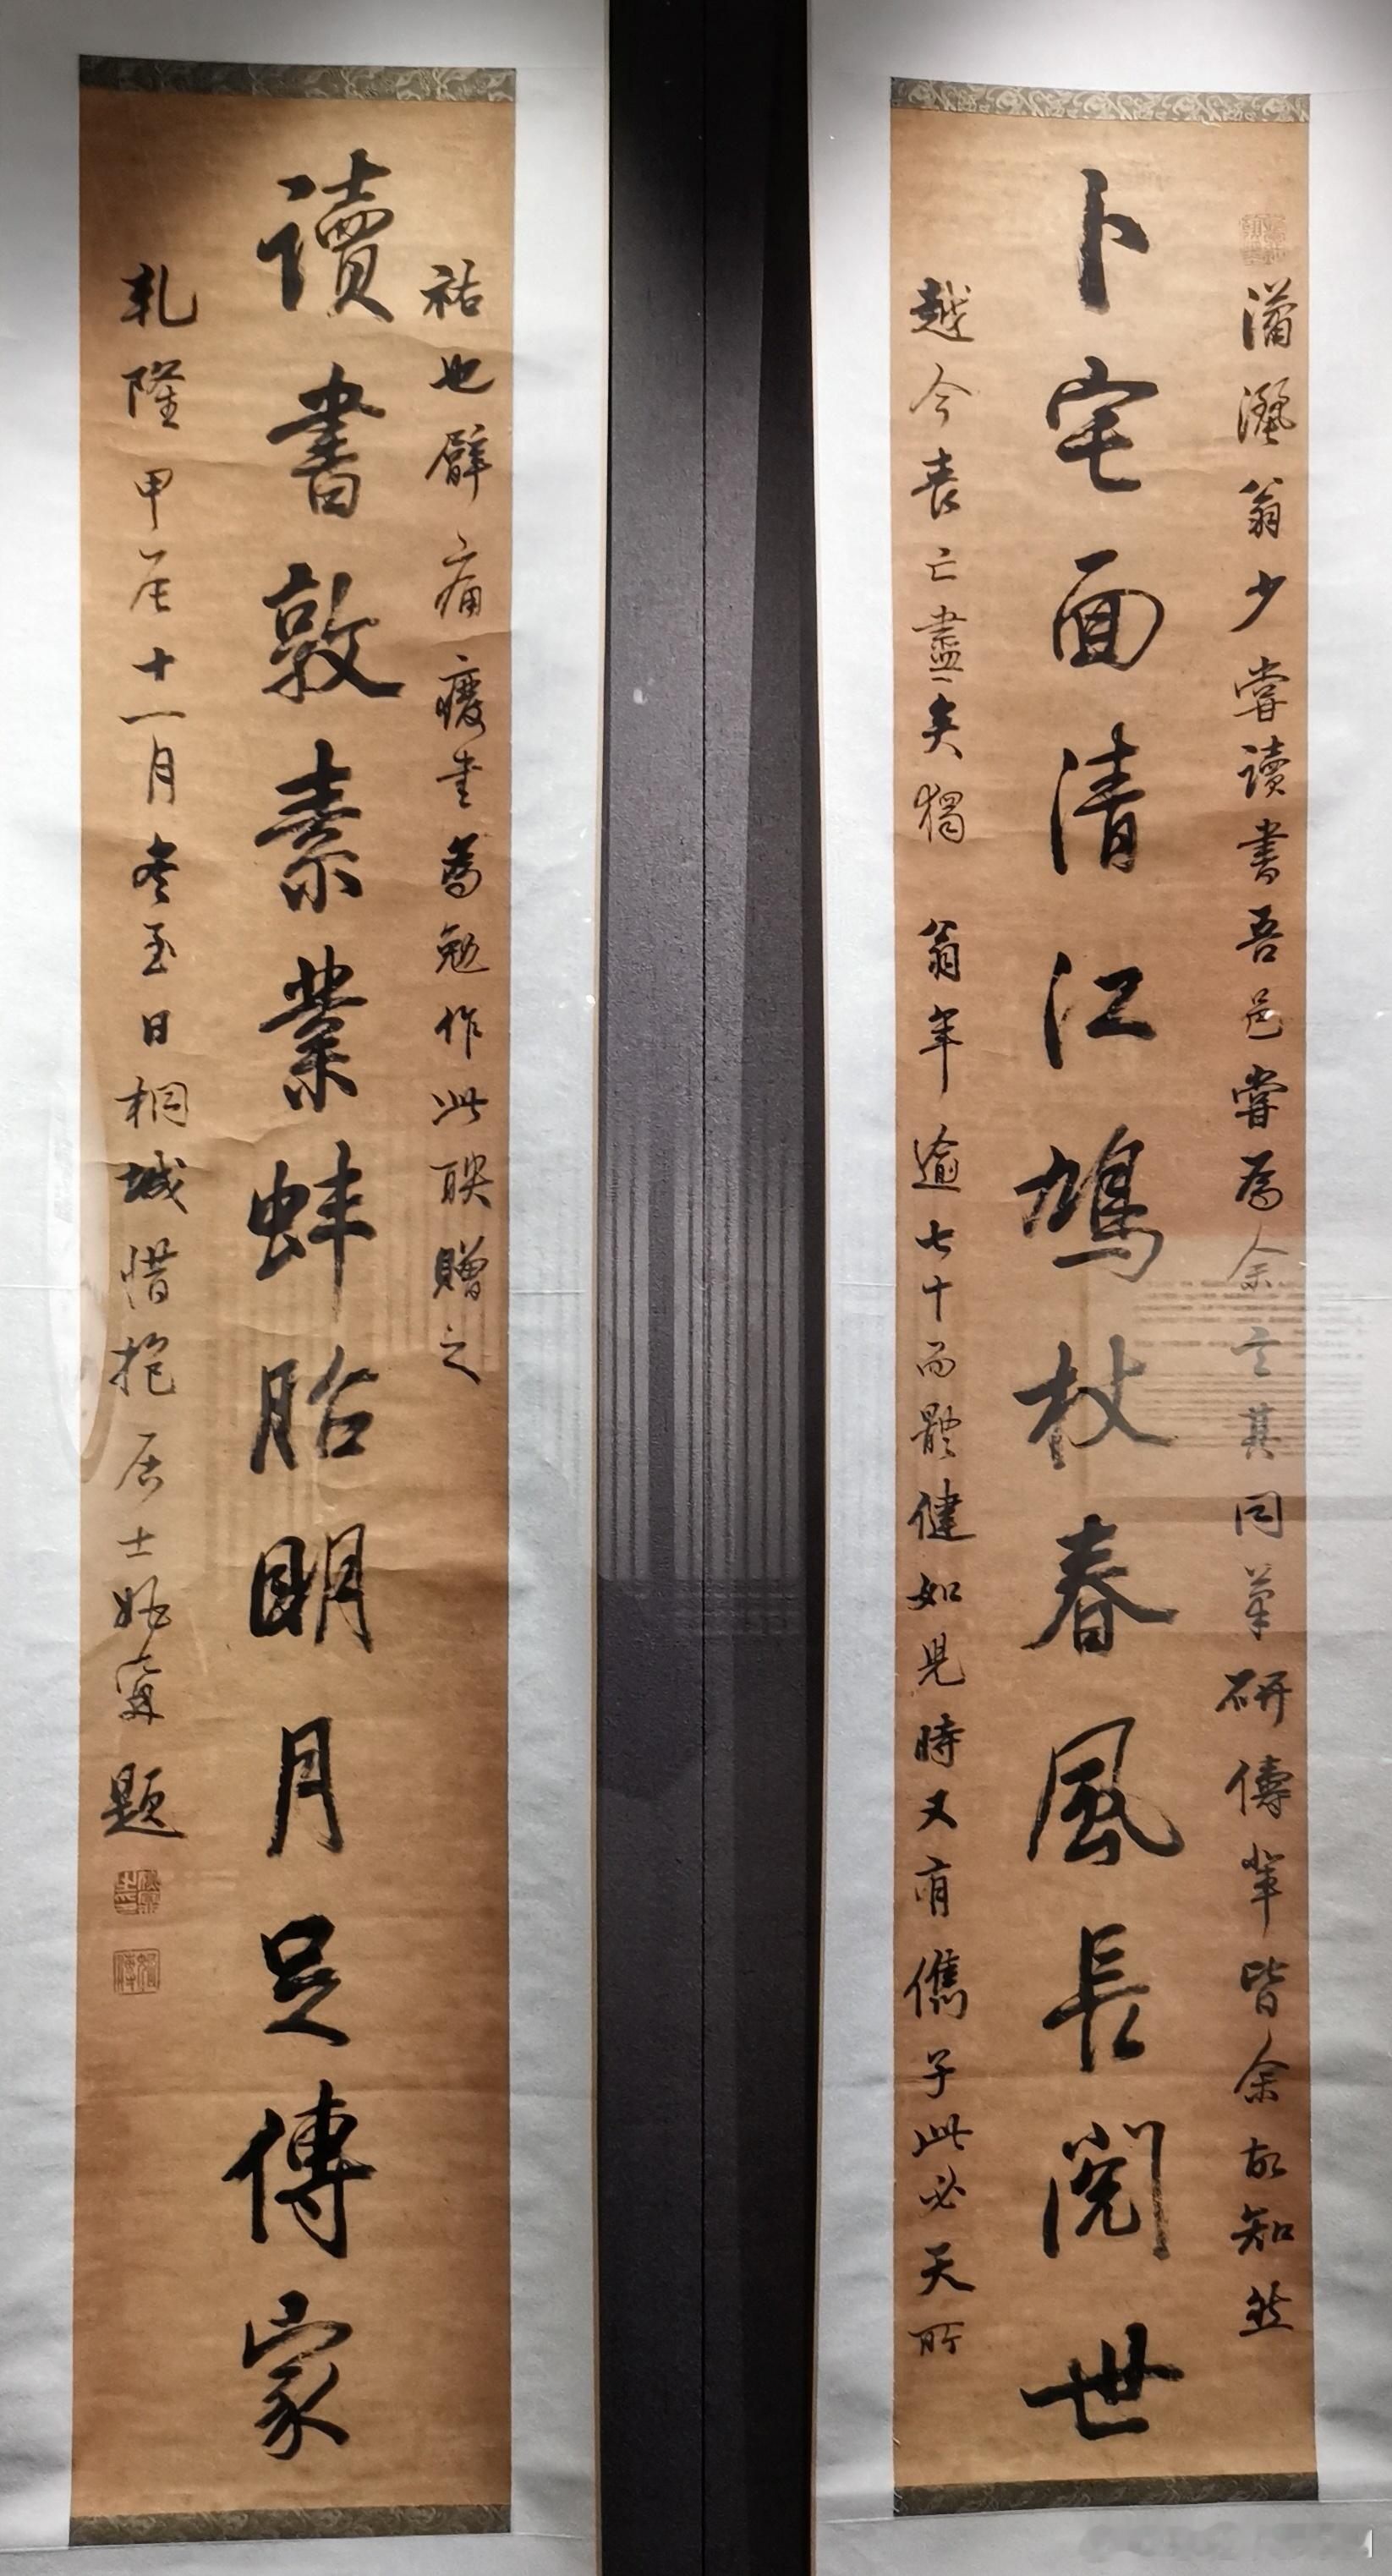 翁少嘗讀書吾邑嘗爲余言其同筆研儔輩皆余故知然
卜宅面清江鳩杖春風長閱世
越今喪亡盡矣獨 翁年逾七十而體健如見時又有儁子此必天所
祐也臂痛廢書爲勉作此联贈之
讀書敦素業蚌胎明月足傳家
乹隆甲辰十一月冬至日桐城惜抱居士姚鼐題